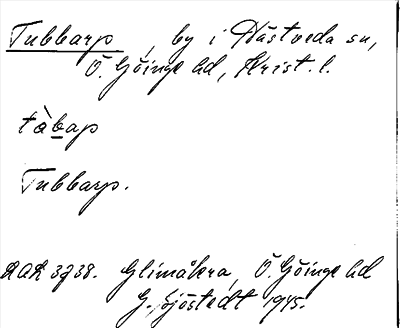 Tubbarp, by i Hästveda sn,
Ö. Göinge hd, Krist. l.
tàbap
Tubbarp.
RAÄ 3738. Glimåkra, Ö. Göinge hd
G. Sjöstedt 1945.